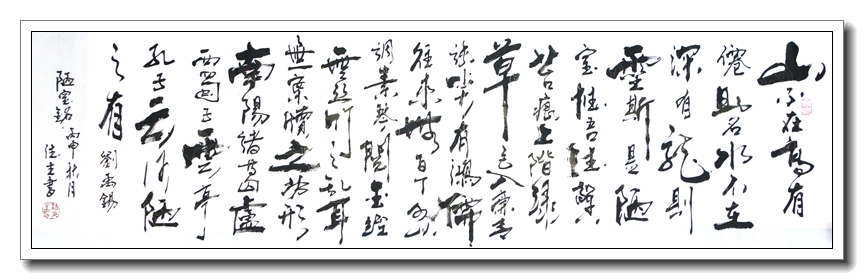 山不在高有
僊則名水不在
深有龍則
靈斯是陋
室惟吾德馨
苔痕上階緑
草色入簾青
談笑有鴻儒
往来無白丁可以
調素琴閱金經
無絲竹之亂耳
無案牘之勞形
南陽諸葛廬
西蜀子雲亭
孔子云何陋
之有 劉禹錫
陋室銘 丙申秋月
書